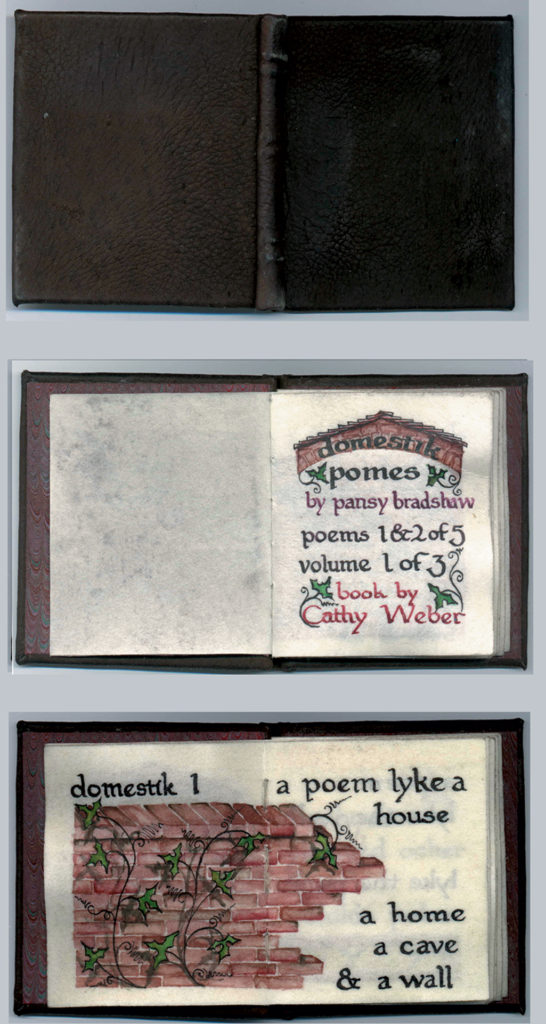 domestik
pomes
by pansy bradshaw
poems 1&2 of 5
volume 1 of 3
book by
Cathy Weber
domestik 1
a poem lyke a
house
a home
a cave
& a wall